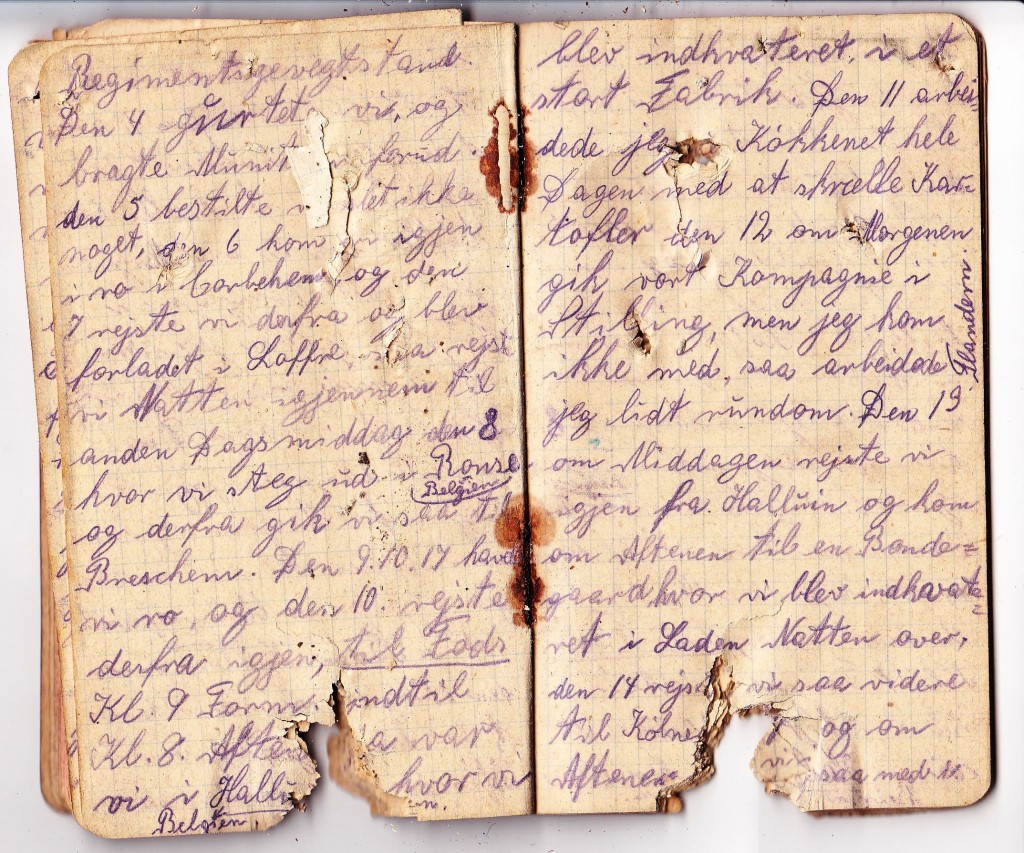 Regimentsgevegtstand.
Den 4 vi, og
bragte Munit forud.
den 5 bestilte v let ikke
noget, den 6 kom vi igjen
i ro i Corbehem, og den
7 rejste vi derfra og blev
forladet i Loffre, saa rejst
vi Natten igjennem til
anden Dagsmiddag den 8
hvor vi steg ud i Ronse
Belgien
og derfra gik vi saa til
Breschem. Den 9.10.17 havde
vi ro, og den 10. rejste
derfra igjen, til Fods
Kl. 9 Form. indtil
Kl. 8. Aften da var
vi i Hallu hvor vi
Belgien.
blev indkvateret, i et
stort Fabrik. Den 11 arbei-
dede jeg Kökkenet hele
Dagen med at skrælle Kar-
tofler den 12 om Morgenen
gik vort Kompagnie i
Stilling, men jeg kom
ikke med, saa arbeidede
Flandern.
jeg lidt rundom. Den 13
om Middagen rejste vi
igjen fra Halluin og kom
om Aftenen til en Bonde=
gaard, hvor vi blev indkvate=
ret i Laden Natten over,
den 14 rejst vi saa videre
til Kölne og om
Aftenen vi saa med